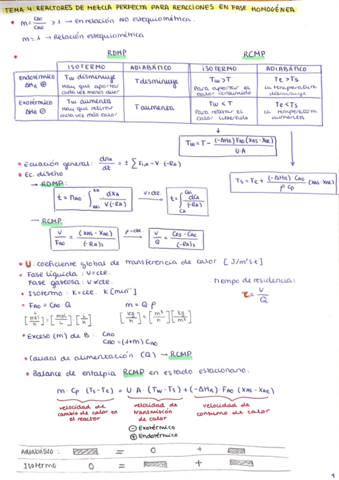 TEMA 4: REACTORES DE MEZCLA PERFECTA PARA REACCIONES EN FASE HOMOGÉNEA
• m = CB0/CA0 > 1 → En relación No estequiométrica.
m = 1 → Relación estequiométrica
RDMP RCMP
ISOTERMO ADIABÁTICO ISOTERMO ADIABÁTICO
Endotérmico ΔHR ⊕ Tw disminuye Hay que aportar cada vez más calor T disminuye Tw > T Para aportar el calor consumido Te > Ts La temperatura disminuye
Exotérmico ΔHR ⊖ Tw aumenta Hay que retirar cada vez más calor T aumenta Tw < T Para retirar el calor Te < Ts La temperatura aumenta
Tw = T - (-ΔHR) FA0 (XAS - XAE) / U·A
• Ecuación general: dnA/dt = ± Σ Fi,A - V·(-RA)
Ts = Te + (-ΔHR) CA0 / ρ Cp (XAS - XAE)
• Ec. diseño
→ RDMP:
t = nA0 ∫ dXA / V(-RA) V=cte. t = ∫ dCA / (-RA)
→ RCMP
V/FA0 = (XAS - XAE) / (-RA)s ρ=cte. V/Q = CAE - CAS / (-RA)s
• U: coeficiente global de transferencia de calor [J/m²s t]
• Fase líquida: V=cte.
Fase gaseosa: V≠cte.
Tiempo de residencia:
τ = V/Q
• Isotermo: K=cte. K [min⁻¹]
• FA0 = CA0·Q m = Q ρ
[mol/t] = [mol/l]·[l/t] [kg/h] = [m³/h] [kg/m³]
• Exceso (m) de B: CA0
CB0 = (1+m) CA0
• Caudal de alimentación (Q) → RCMP
• Balance de entalpía RCMP en estado estacionario:
m · Cp (Ts - Te) = U·A·(Tw - Ts) + (-ΔHR) · FA0 (XAS - XAE)
velocidad de cambio de calor en el reactor
velocidad de transmisión de calor
velocidad de consumo de calor
⊖ Exotérmico
⊕ Endotérmico
ADIABÁTICO: = 0 +
Isotermo 0 = +
1